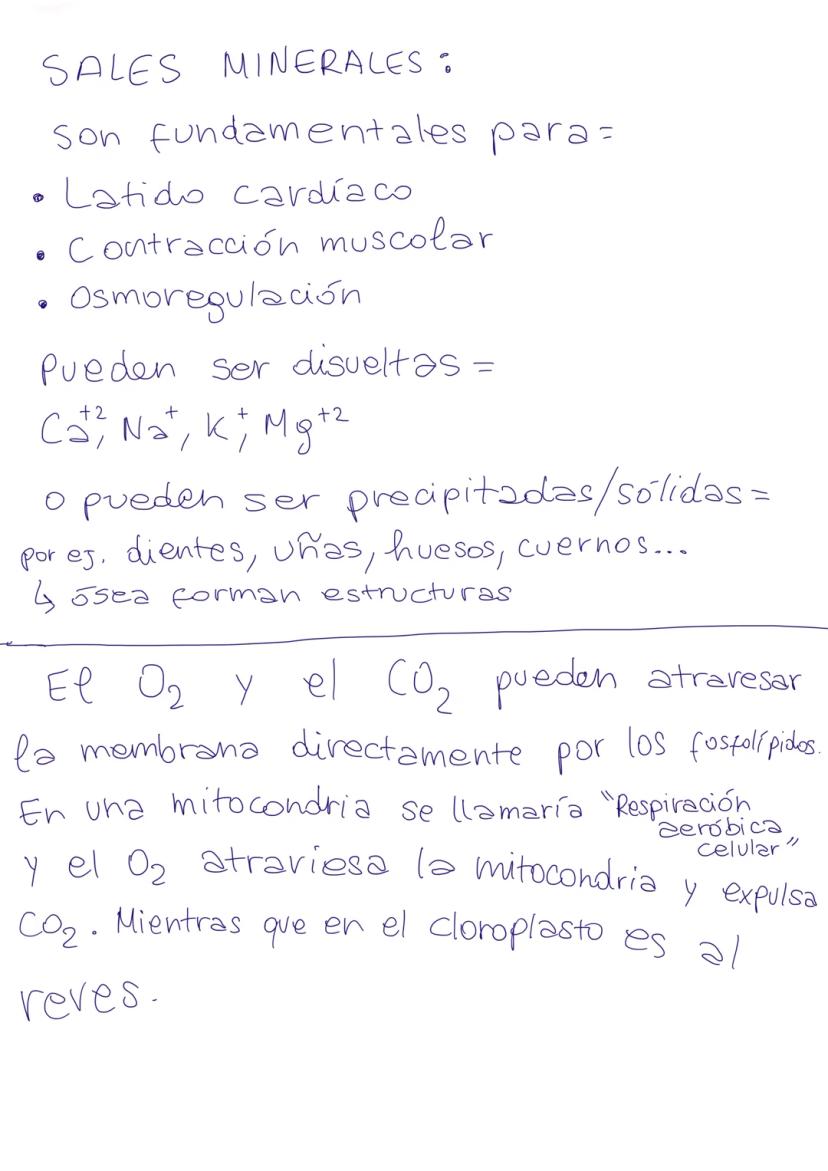 SALES MINERALES:
son fundamentales para=
• Latido cardíaco
• Contracción muscolar
• Osmoregulación
Pueden ser disueltas =
Ca⁺², Na⁺, K⁺, Mg⁺²
o pueden ser precipitadas/sólidas =
por ej. dientes, uñas, huesos, cuernos...
↳ ósea forman estructuras
El O₂ y el CO₂ pueden atravesar
la membrana directamente por los fosfolípidos.
En una mitocondria se llamaría "Respiración
aeróbica
celular"
y el O₂ atraviesa la mitocondria y expulsa
CO₂. Mientras que en el cloroplasto es al
reves.